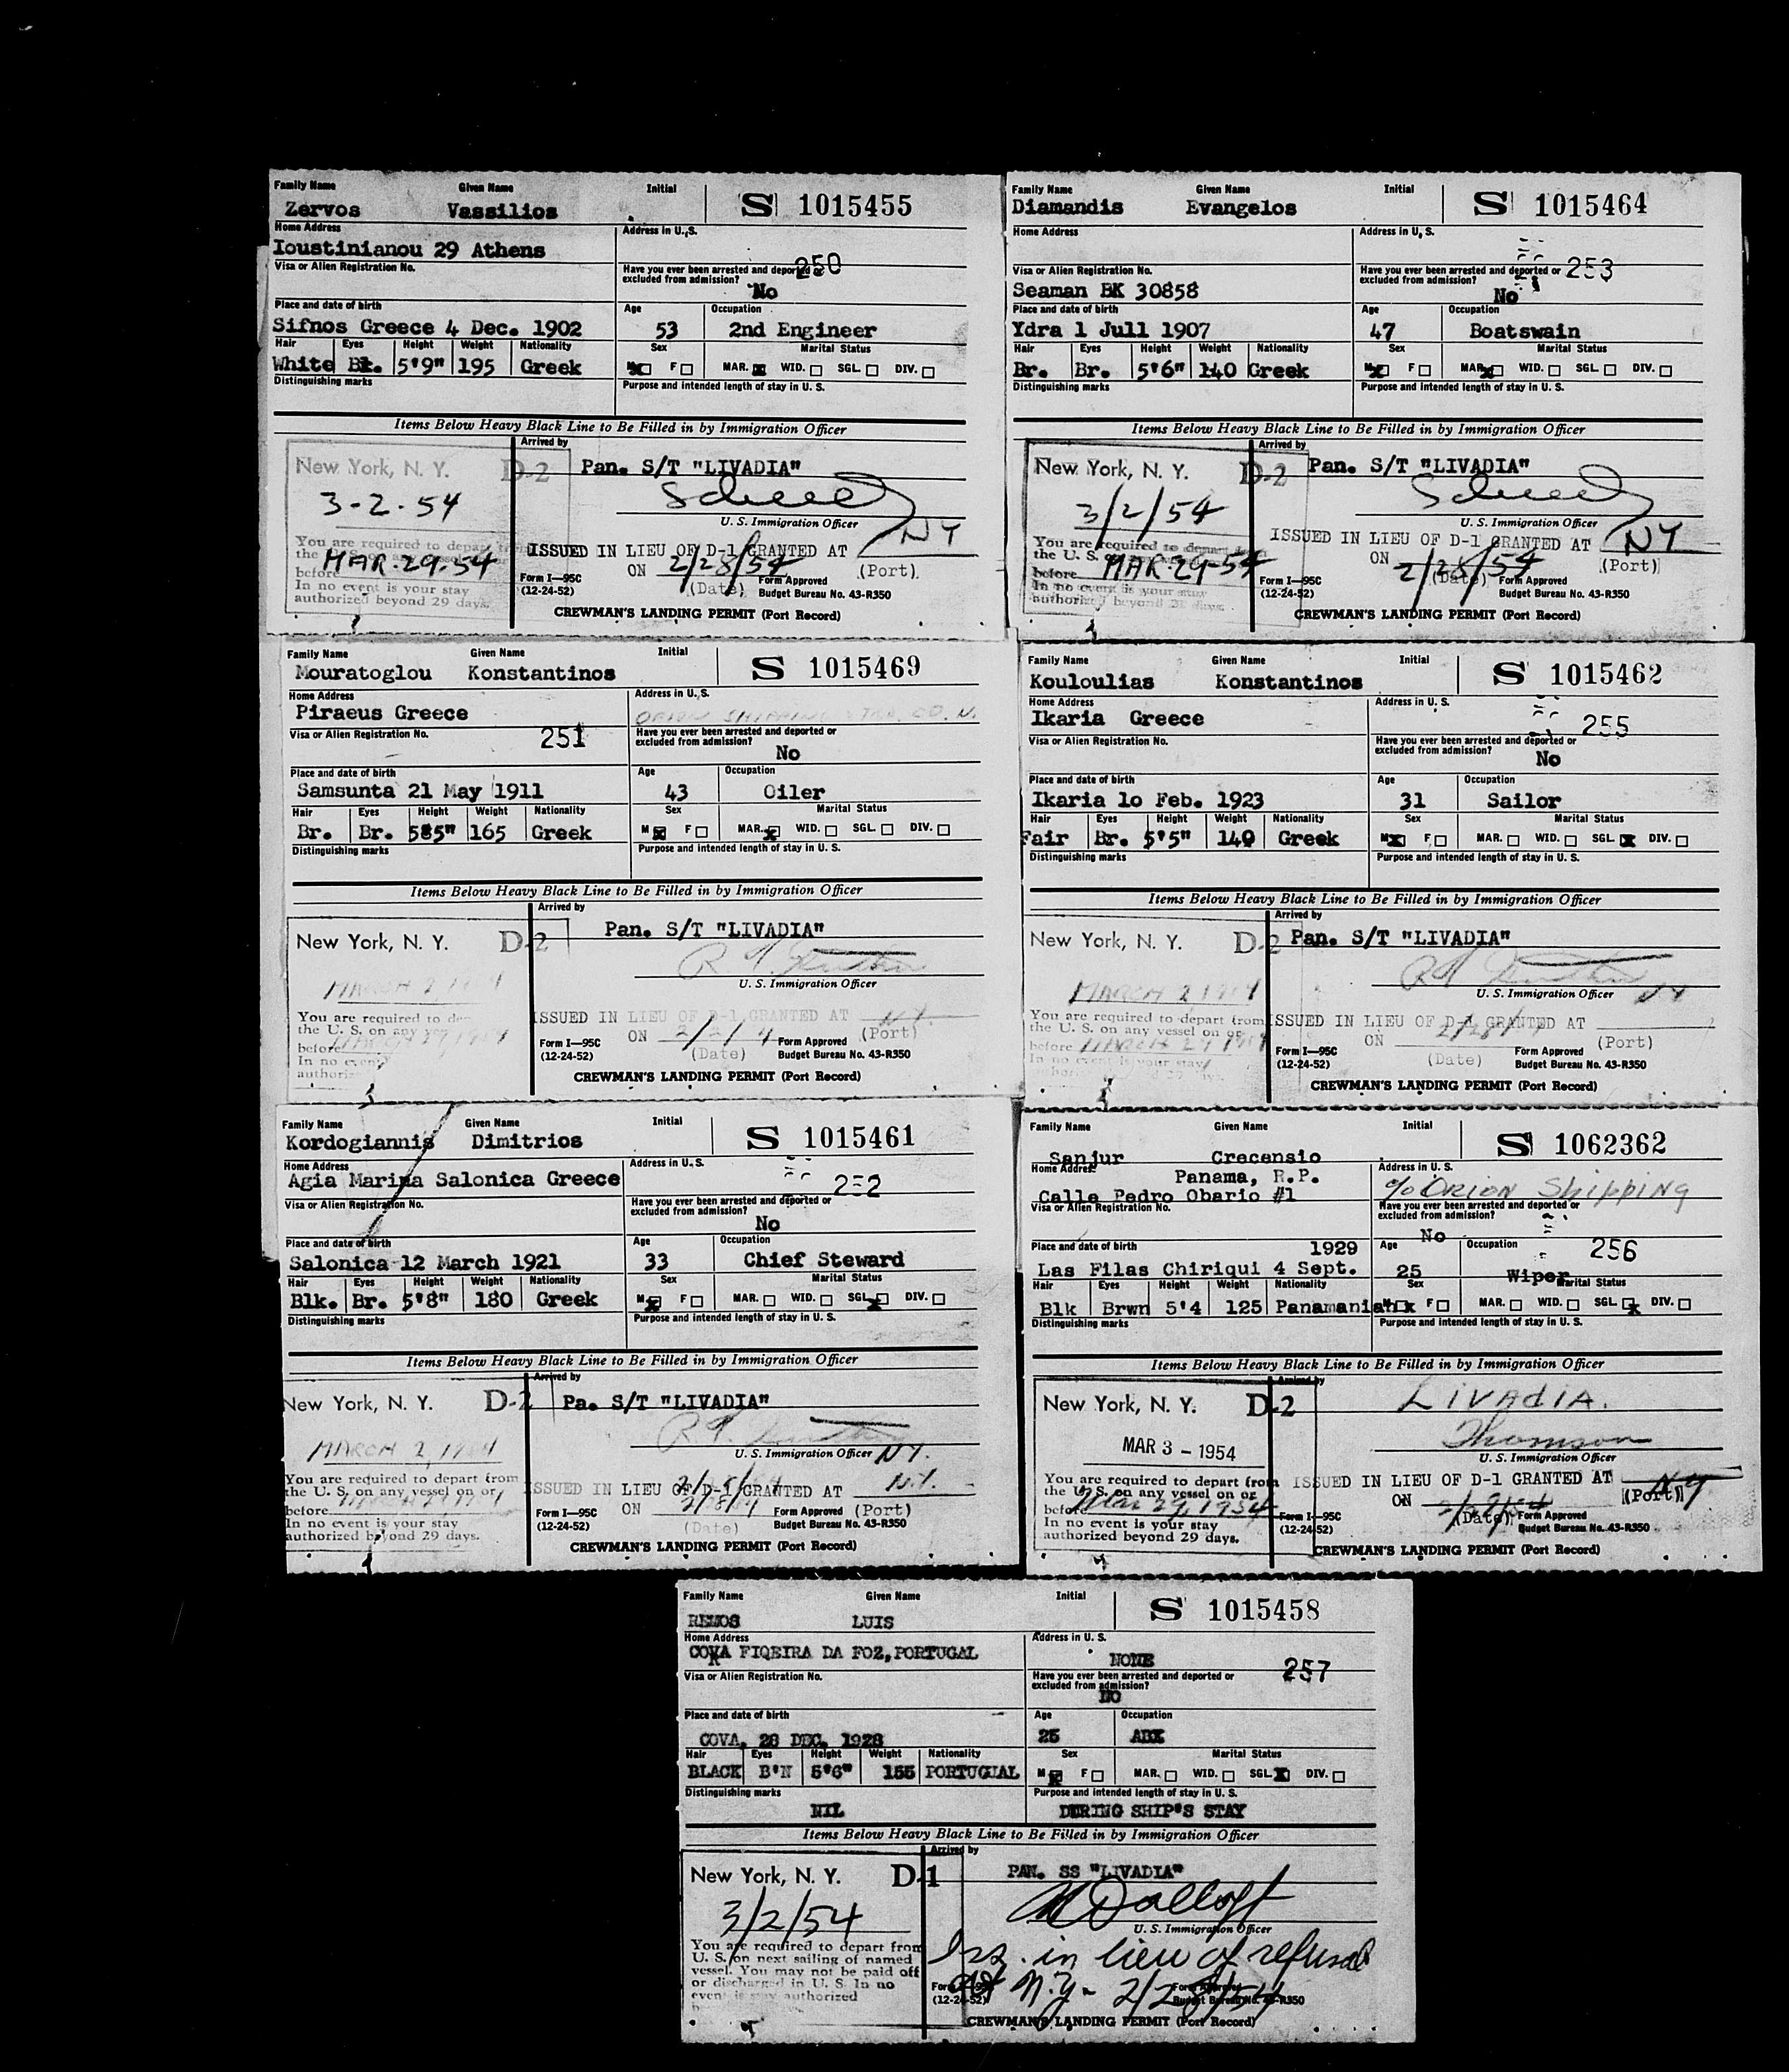 Family Name Given Name Initial S 1015455
Zervos Vassilios
Home Address Address in U. S.
Ioustinianou 29 Athens
Visa or Alien Registration No. Have you ever been arrested and deported or excluded from admission? 250
No
Place and date of birth Age Occupation
Sifnos Greece 4 Dec. 1902 53 2nd Engineer
Hair Eyes Height Weight Nationality Sex Marital Status
White 5'9" 195 Greek M F MAR. WID. SGL. DIV.
Distinguishing marks Purpose and intended length of stay in U. S.
Items Below Heavy Black Line to Be Filled in by Immigration Officer
Arrived by
New York, N. Y. D-2 Pan. S/T "LIVADIA"
3-2-54
U. S. Immigration Officer
You are required to depart from
the U. S. on any
before MAR-29-54
In no event is your stay
authorized beyond 29 days.
ISSUED IN LIEU OF D-1 GRANTED AT NY
ON 2/28/54 (Port)
(Date)
Form I-95C
(12-24-52)
Form Approved
Budget Bureau No. 43-R350
CREWMAN'S LANDING PERMIT (Port Record)
Family Name Given Name Initial S 1015464
Diamandis Evangelos
Home Address Address in U. S.
Visa or Alien Registration No. Have you ever been arrested and deported or excluded from admission? 253
Seaman BK 30858 No
Place and date of birth Age Occupation
Ydra 1 Jull 1907 47 Boatswain
Hair Eyes Height Weight Nationality Sex Marital Status
Br. Br. 5'6" 140 Greek M F MAR. WID. SGL. DIV.
Distinguishing marks Purpose and intended length of stay in U. S.
Items Below Heavy Black Line to Be Filled in by Immigration Officer
Arrived by
New York, N. Y. D-2 Pan. S/T "LIVADIA"
3/2/54
U. S. Immigration Officer
You are required to depart from
the U. S. on any
before MAR-29-54
In no event is your stay
authorized beyond 29 days.
ISSUED IN LIEU OF D-1 GRANTED AT NY
ON 2/28/54 (Port)
(Date)
Form I-95C
(12-24-52)
Form Approved
Budget Bureau No. 43-R350
CREWMAN'S LANDING PERMIT (Port Record)
Family Name Given Name Initial S 1015469
Mouratoglou Konstantinos
Home Address Address in U. S.
Piraeus Greece ORION SHIPPING CO. N.
Visa or Alien Registration No. 251 Have you ever been arrested and deported or excluded from admission?
No
Place and date of birth Age Occupation
Samsunta 21 May 1911 43 Oiler
Hair Eyes Height Weight Nationality Sex Marital Status
Br. Br. 585" 165 Greek M F MAR. WID. SGL. DIV.
Distinguishing marks Purpose and intended length of stay in U. S.
Items Below Heavy Black Line to Be Filled in by Immigration Officer
Arrived by
New York, N. Y. D-2 Pan. S/T "LIVADIA"
MARCH 2, 1954
U. S. Immigration Officer
You are required to
the U. S. on any
before
In no event
ISSUED IN LIEU OF D-1 GRANTED AT N.Y.
ON (Port)
(Date)
Form I-95C
(12-24-52)
Form Approved
Budget Bureau No. 43-R350
CREWMAN'S LANDING PERMIT (Port Record)
Family Name Given Name Initial S 1015462
Kouloulias Konstantinos
Home Address Address in U. S.
Ikaria Greece 255
Visa or Alien Registration No. Have you ever been arrested and deported or excluded from admission?
No
Place and date of birth Age Occupation
Ikaria 1o Feb. 1923 31 Sailor
Hair Eyes Height Weight Nationality Sex Marital Status
Fair Br. 5'5" 140 Greek M F MAR. WID. SGL. DIV.
Distinguishing marks Purpose and intended length of stay in U. S.
Items Below Heavy Black Line to Be Filled in by Immigration Officer
Arrived by
New York, N. Y. D-2 Pan. S/T "LIVADIA"
MARCH 2 1954
U. S. Immigration Officer NY
You are required to depart from
the U. S. on any vessel on or
before MARCH 29 1954
In no event is your stay
ISSUED IN LIEU OF D-1 GRANTED AT
ON 2/28/54 (Port)
(Date)
Form I-95C
(12-24-52)
Form Approved
Budget Bureau No. 43-R350
CREWMAN'S LANDING PERMIT (Port Record)
Family Name Given Name Initial S 1015461
Kordogiannis Dimitrios
Home Address Address in U. S.
Agia Marina Salonica Greece 252
Visa or Alien Registration No. Have you ever been arrested and deported or excluded from admission?
No
Place and date of birth Age Occupation
Salonica 12 March 1921 33 Chief Steward
Hair Eyes Height Weight Nationality Sex Marital Status
Blk. Br. 5'8" 180 Greek M F MAR. WID. SGL. DIV.
Distinguishing marks Purpose and intended length of stay in U. S.
Items Below Heavy Black Line to Be Filled in by Immigration Officer
Arrived by
New York, N. Y. D-2 Pa. S/T "LIVADIA"
MARCH 2, 1954
U. S. Immigration Officer N.Y.
You are required to depart from
the U. S. on any vessel on or
before MARCH 29 1954
In no event is your stay
authorized beyond 29 days.
ISSUED IN LIEU OF D-1 GRANTED AT N.Y.
ON 2/28/54 (Port)
(Date)
Form I-95C
(12-24-52)
Form Approved
Budget Bureau No. 43-R350
CREWMAN'S LANDING PERMIT (Port Record)
Family Name Given Name Initial S 1062362
Sanjur Crecensio
Home Address Address in U. S.
Panama, R.P.
Calle Pedro Obario #1 % ORION Shipping
Visa or Alien Registration No. Have you ever been arrested and deported or excluded from admission?
No
Place and date of birth Age Occupation 256
1929
Las Filas Chiriqui 4 Sept. 25 Wiper
Hair Eyes Height Weight Nationality Sex Marital Status
Blk Brwn 5'4 125 Panamanian M x F MAR. WID. SGL. DIV.
Distinguishing marks Purpose and intended length of stay in U. S.
Items Below Heavy Black Line to Be Filled in by Immigration Officer
Arrived by
New York, N. Y. D-2 LIVADIA.
MAR 3 - 1954 Thomson
U. S. Immigration Officer
You are required to depart from
the U. S. on any vessel on or
before Mar 29, 1954
In no event is your stay
authorized beyond 29 days.
ISSUED IN LIEU OF D-1 GRANTED AT NY
ON 2/28/54 (Port)
(Date)
Form I-95C
(12-24-52)
Form Approved
Budget Bureau No. 43-R350
CREWMAN'S LANDING PERMIT (Port Record)
Family Name Given Name Initial S 1015458
REMOS LUIS
Home Address Address in U. S.
COVA FIQEIRA DA FOZ, PORTUGAL NONE
Visa or Alien Registration No. Have you ever been arrested and deported or excluded from admission? 257
NO
Place and date of birth Age Occupation
COVA, 28 DEC. 1928 25
Hair Eyes Height Weight Nationality Sex Marital Status
BLACK B'N 5'6" 155 PORTUGUAL M F MAR. WID. SGL. DIV.
Distinguishing marks Purpose and intended length of stay in U. S.
NIL DURING SHIP'S STAY
Items Below Heavy Black Line to Be Filled in by Immigration Officer
Arrived by
New York, N. Y. D-1 PAN. SS "LIVADIA"
3/2/54
U. S. Immigration Officer
You are required to depart from
U. S. on next sailing of named
vessel. You may not be paid off
or discharged in U. S. In no
event is stay authorized
Iss. in lieu of refusal
at N.Y. - 2/28/54
Form I-95C
(12-24-52)
Form Approved
Budget Bureau No. 43-R350
CREWMAN'S LANDING PERMIT (Port Record)